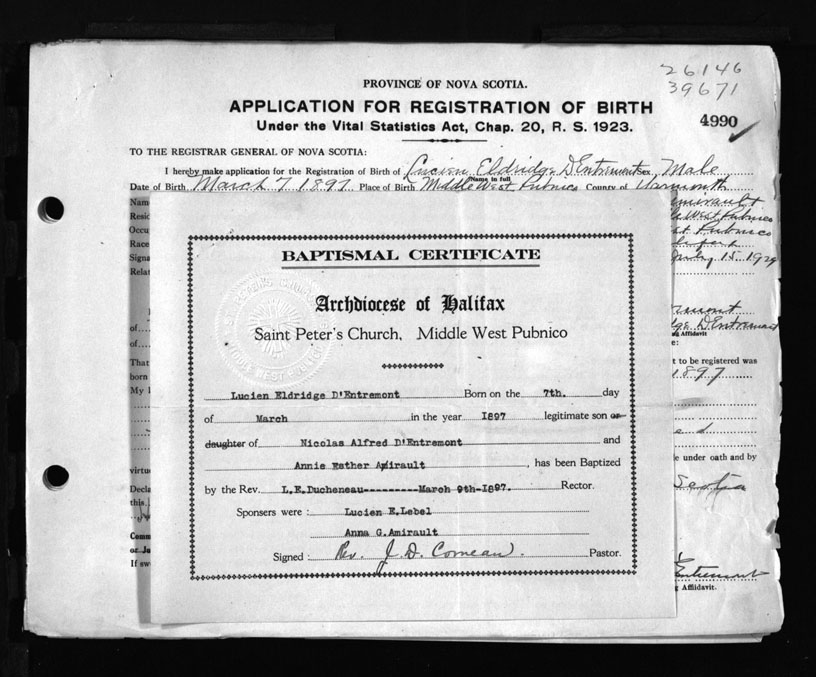 26146
39671
PROVINCE OF NOVA SCOTIA.
APPLICATION FOR REGISTRATION OF BIRTH
4990
Under the Vital Statistics Act, Chap. 20, R. S. 1923.
TO THE REGISTRAR GENERAL OF NOVA SCOTIA:
I hereby make application for the Registration of Birth of Lucien Eldridge D'Entremont sex Male
(Name in full)
Date of Birth March 7 1897 Place of Birth Middle West Pubnico County of Yarmouth
Nam
Resid West Pubnico
Occu Pubnico
Race
Signa July 15-1929
Relat
of
D'Entremont
of
ng Affidavit
That t to be registered was
born 1897
My
e under oath and by
virtue
Decla Scotia
this
Comm
or Ju
If sw
g Affidavit.
BAPTISMAL CERTIFICATE
Archdiocese of Halifax
Saint Peter's Church, Middle West Pubnico
Lucien Eldridge D'Entremont Born on the 7th. day
of March in the year 1897 legitimate son or
daughter of Nicolas Alfred D'Entremont and
Annie Esther Amirault, has been Baptized
by the Rev. L.E.Ducheneau---------March 9th-1897. Rector.
Sponsers were : Lucien E.Lebel
Anna G.Amirault
Signed : Rev. J. D. Comeau. Pastor.